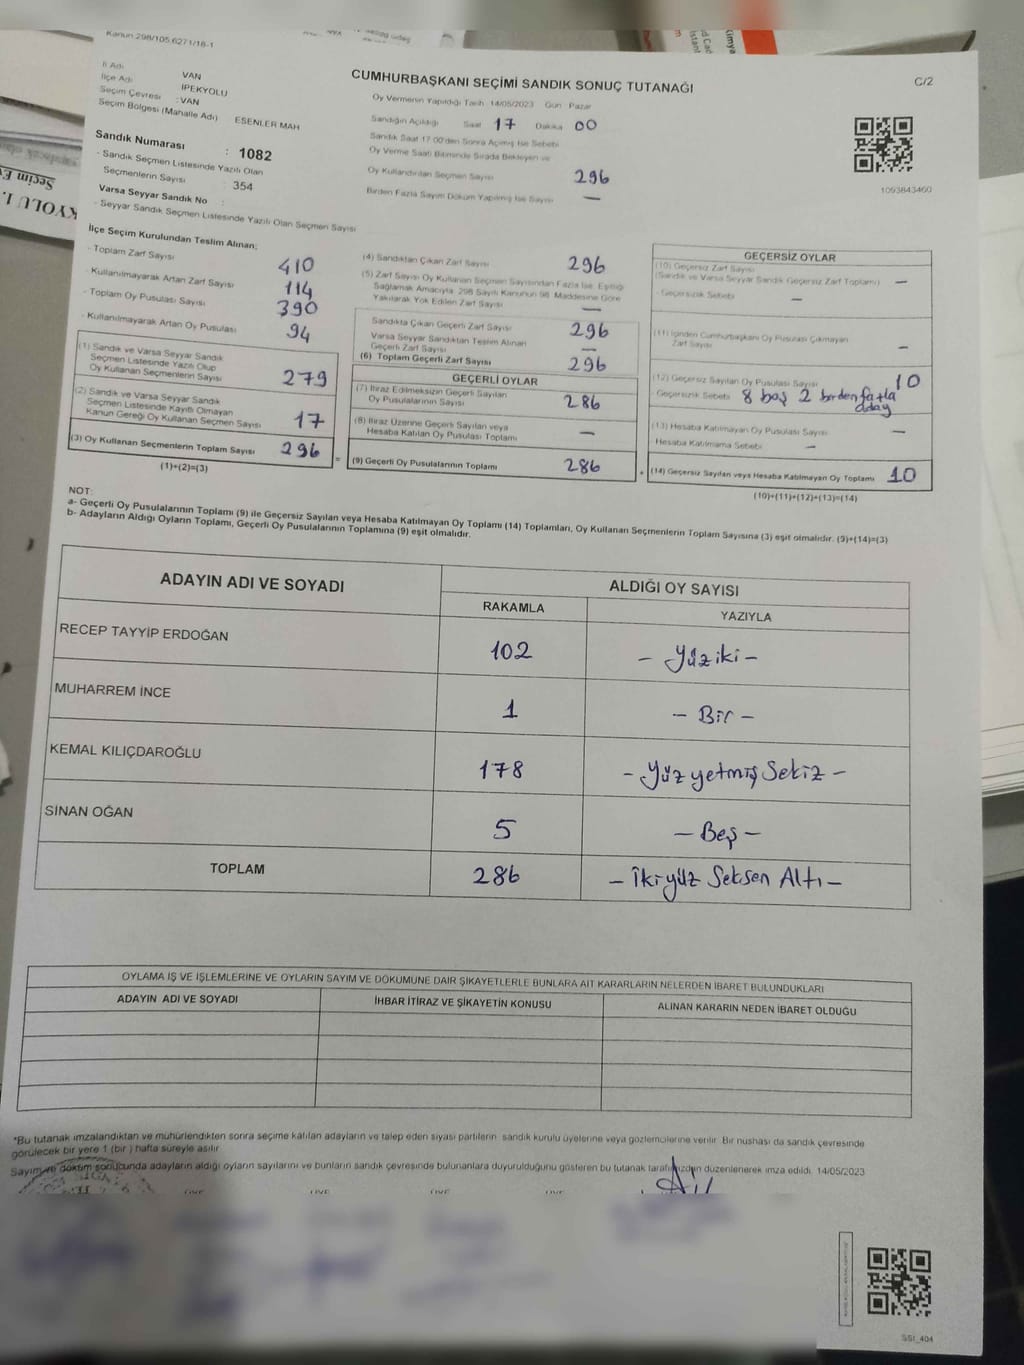 Kanun 298/105,6271/18-1
C/2
CUMHURBAŞKANI SEÇİMİ SANDIK SONUÇ TUTANAĞI
İl Adı VAN
İlçe Adı İPEKYOLU
Seçim Çevresi : VAN
Seçim Bölgesi (Mahalle Adı) ESENLER MAH
Sandık Numarası : 1082
- Sandık Seçmen Listesinde Yazılı Olan
Seçmenlerin Sayısı : 354
Varsa Seyyar Sandık No :
- Seyyar Sandık Seçmen Listesinde Yazılı Olan Seçmen Sayısı
Oy Vermenin Yapıldığı Tarih 14/05/2023 Gün Pazar
Sandığın Açıldığı Saat 17 Dakika 00
Sandık Saat 17:00'den Sonra Açılmış İse Sebebi
Oy Verme Saati Bitiminde Sırada Bekleyen ve
Oy Kullandırılan Seçmen Sayısı 296
Birden Fazla Sayım Döküm Yapılmış İse Sayısı —
1093843460
İlçe Seçim Kurulundan Teslim Alınan;
- Toplam Zarf Sayısı 410
- Kullanılmayarak Artan Zarf Sayısı 114
- Toplam Oy Pusulası Sayısı 390
- Kullanılmayarak Artan Oy Pusulası 94
(1) Sandık ve Varsa Seyyar Sandık
Seçmen Listesinde Yazılı Olup
Oy Kullanan Seçmenlerin Sayısı 279
(2) Sandık ve Varsa Seyyar Sandık
Seçmen Listesinde Kayıtlı Olmayan
Kanun Gereği Oy Kullanan Seçmen Sayısı 17
(3) Oy Kullanan Seçmenlerin Toplam Sayısı 296
(1)+(2)=(3)
(4) Sandıktan Çıkan Zarf Sayısı 296
(5) Zarf Sayısı Oy Kullanan Seçmen Sayısından Fazla İse, Eşitliği
Sağlamak Amacıyla, 298 Sayılı Kanunun 98. Maddesine Göre
Yakılarak Yok Edilen Zarf Sayısı —
Sandıkta Çıkan Geçerli Zarf Sayısı 296
Varsa Seyyar Sandıktan Teslim Alınan
Geçerli Zarf Sayısı —
(6) Toplam Geçerli Zarf Sayısı 296
GEÇERLİ OYLAR
(7) İtiraz Edilmeksizin Geçerli Sayılan
Oy Pusulalarının Sayısı 286
(8) İtiraz Üzerine Geçerli Sayılan veya
Hesaba Katılan Oy Pusulası Toplamı —
= (9) Geçerli Oy Pusulalarının Toplamı 286
GEÇERSİZ OYLAR
(10) Geçersiz Zarf Sayısı
(Sandık ve Varsa Seyyar Sandık Geçersiz Zarf Toplamı) —
- Geçersizlik Sebebi —
(11) İçinden Cumhurbaşkanı Oy Pusulası Çıkmayan
Zarf Sayısı —
(12) Geçersiz Sayılan Oy Pusulası Sayısı 10
Geçersizlik Sebebi 8 boş 2 birden fazla
aday
(13) Hesaba Katılmayan Oy Pusulası Sayısı —
Hesaba Katılmama Sebebi —
+ (14) Geçersiz Sayılan veya Hesaba Katılmayan Oy Toplamı 10
(10)+(11)+(12)+(13)=(14)
NOT:
a- Geçerli Oy Pusulalarının Toplamı (9) ile Geçersiz Sayılan veya Hesaba Katılmayan Oy Toplamı (14) Toplamları, Oy Kullanan Seçmenlerin Toplam Sayısına (3) eşit olmalıdır. (9)+(14)=(3)
b- Adayların Aldığı Oyların Toplamı, Geçerli Oy Pusulalarının Toplamına (9) eşit olmalıdır.
ADAYIN ADI VE SOYADI ALDIĞI OY SAYISI
RAKAMLA YAZIYLA
RECEP TAYYİP ERDOĞAN 102 - Yüziki -
MUHARREM İNCE 1 - Bir -
KEMAL KILIÇDAROĞLU 178 - Yüz yetmiş Sekiz -
SİNAN OĞAN 5 - Beş -
TOPLAM 286 - İkiyüz Seksen Altı -
OYLAMA İŞ VE İŞLEMLERİNE VE OYLARIN SAYIM VE DÖKÜMÜNE DAİR ŞİKAYETLERLE BUNLARA AİT KARARLARIN NELERDEN İBARET BULUNDUKLARI
ADAYIN ADI VE SOYADI İHBAR İTİRAZ VE ŞİKAYETİN KONUSU ALINAN KARARIN NEDEN İBARET OLDUĞU
*Bu tutanak imzalandıktan ve mühürlendikten sonra seçime katılan adayların ve talep eden siyasi partilerin sandık kurulu üyelerine veya gözlemcilerine verilir. Bir nüshası da sandık çevresinde
görülecek bir yere 1 (bir) hafta süreyle asılır.
Sayım ve döküm sonucunda adayların aldığı oyların sayılarını ve bunların sandık çevresinde bulunanlara duyurulduğunu gösteren bu tutanak tarafımızdan düzenlenerek imza edildi. 14/05/2023
SSI_404